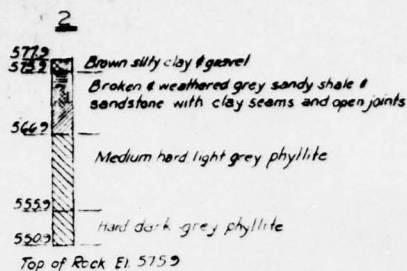 2
577.9
575.9
Brown silty clay & gravel
Broken & weathered grey sandy shale &
sandstone with clay seams and open joints
566.9
Medium hard light grey phyllite
555.9
Hard dark grey phyllite
550.9
Top of Rock El. 575.9